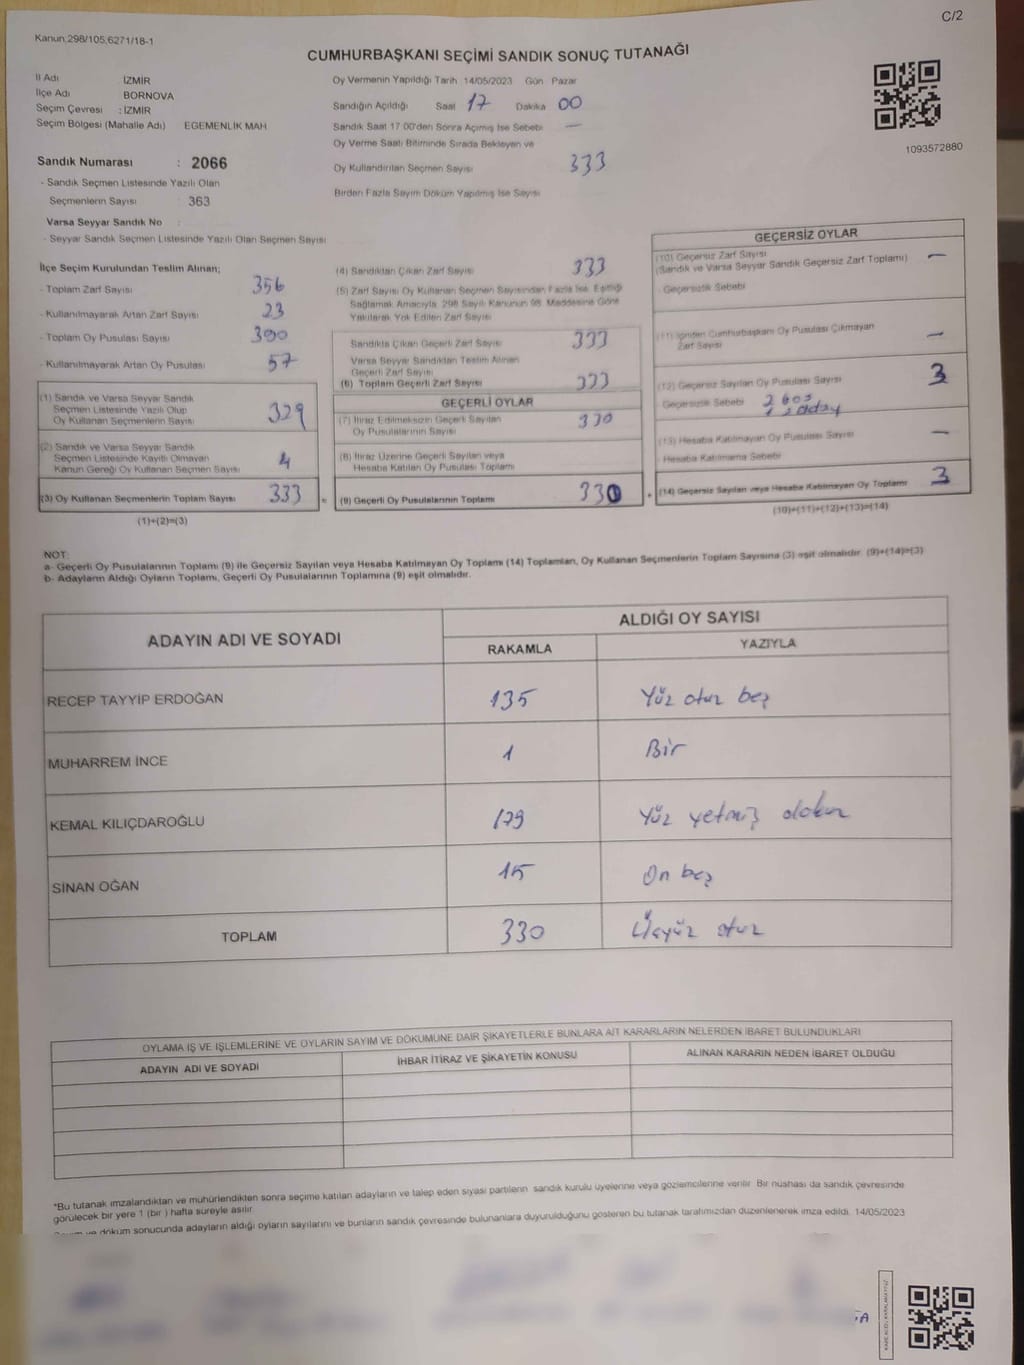 C/2
Kanun,298/105,6271/18-1
CUMHURBAŞKANI SEÇİMİ SANDIK SONUÇ TUTANAĞI
1093572880
İl Adı İZMİR
İlçe Adı BORNOVA
Seçim Çevresi : İZMİR
Seçim Bölgesi (Mahalle Adı) EGEMENLİK MAH
Sandık Numarası : 2066
- Sandık Seçmen Listesinde Yazılı Olan
Seçmenlerin Sayısı 363
Varsa Seyyar Sandık No
- Seyyar Sandık Seçmen Listesinde Yazılı Olan Seçmen Sayısı
Oy Vermenin Yapıldığı Tarih 14/05/2023 Gün Pazar
Sandığın Açıldığı Saat 17 Dakika 00
Sandık Saat 17:00'den Sonra Açılmış İse Sebebi —
Oy Verme Saati Bitiminde Sırada Bekleyen ve
Oy Kullandırılan Seçmen Sayısı 333
Birden Fazla Sayım Döküm Yapılmış İse Sayısı
İlçe Seçim Kurulundan Teslim Alınan;
- Toplam Zarf Sayısı 356
- Kullanılmayarak Artan Zarf Sayısı 23
- Toplam Oy Pusulası Sayısı 390
- Kullanılmayarak Artan Oy Pusulası 57
(1) Sandık ve Varsa Seyyar Sandık
Seçmen Listesinde Yazılı Olup
Oy Kullanan Seçmenlerin Sayısı 329
(2) Sandık ve Varsa Seyyar Sandık
Seçmen Listesinde Kayıtlı Olmayan
Kanun Gereği Oy Kullanan Seçmen Sayısı 4
(3) Oy Kullanan Seçmenlerin Toplam Sayısı 333
(1)+(2)=(3)
(4) Sandıktan Çıkan Zarf Sayısı 333
(5) Zarf Sayısı Oy Kullanan Seçmen Sayısından Fazla İse, Eşitliği
Sağlamak Amacıyla, 298 Sayılı Kanunun 98. Maddesine Göre
Yakılarak Yok Edilen Zarf Sayısı
Sandıkta Çıkan Geçerli Zarf Sayısı 333
Varsa Seyyar Sandıktan Teslim Alınan
Geçerli Zarf Sayısı
(6) Toplam Geçerli Zarf Sayısı 333
GEÇERLİ OYLAR
(7) İtiraz Edilmeksizin Geçerli Sayılan
Oy Pusulalarının Sayısı 330
(8) İtiraz Üzerine Geçerli Sayılan veya
Hesaba Katılan Oy Pusulası Toplamı
(9) Geçerli Oy Pusulalarının Toplamı 330
GEÇERSİZ OYLAR
(10) Geçersiz Zarf Sayısı
(Sandık ve Varsa Seyyar Sandık Geçersiz Zarf Toplamı) —
- Geçersizlik Sebebi
(11) İçinden Cumhurbaşkanı Oy Pusulası Çıkmayan
Zarf Sayısı —
(12) Geçersiz Sayılan Oy Pusulası Sayısı 3
- Geçersizlik Sebebi 2 boş
1 2 aday
(13) Hesaba Katılmayan Oy Pusulası Sayısı —
- Hesaba Katılmama Sebebi
(14) Geçersiz Sayılan veya Hesaba Katılmayan Oy Toplamı 3
(10)+(11)+(12)+(13)=(14)
NOT:
a- Geçerli Oy Pusulalarının Toplamı (9) ile Geçersiz Sayılan veya Hesaba Katılmayan Oy Toplamı (14) Toplamları, Oy Kullanan Seçmenlerin Toplam Sayısına (3) eşit olmalıdır. (9)+(14)=(3)
b- Adayların Aldığı Oyların Toplamı, Geçerli Oy Pusulalarının Toplamına (9) eşit olmalıdır.
ADAYIN ADI VE SOYADI ALDIĞI OY SAYISI
RAKAMLA YAZIYLA
RECEP TAYYİP ERDOĞAN 135 Yüz otuz beş
MUHARREM İNCE 1 Bir
KEMAL KILIÇDAROĞLU 179 Yüz yetmiş dokuz
SİNAN OĞAN 15 On beş
TOPLAM 330 Üçyüz otuz
OYLAMA İŞ VE İŞLEMLERİNE VE OYLARIN SAYIM VE DÖKÜMÜNE DAİR ŞİKAYETLERLE BUNLARA AİT KARARLARIN NELERDEN İBARET BULUNDUKLARI
ADAYIN ADI VE SOYADI İHBAR İTİRAZ VE ŞİKAYETİN KONUSU ALINAN KARARIN NEDEN İBARET OLDUĞU
*Bu tutanak imzalandıktan ve mühürlendikten sonra seçime katılan adayların ve talep eden siyasi partilerin sandık kurulu üyelerine veya gözlemcilerine verilir. Bir nüshası da sandık çevresinde
görülecek bir yere 1 (bir ) hafta süreyle asılır.
ve döküm sonucunda adayların aldığı oyların sayılarını ve bunların sandık çevresinde bulunanlara duyurulduğunu gösteren bu tutanak tarafımızdan düzenlenerek imza edildi. 14/05/2023